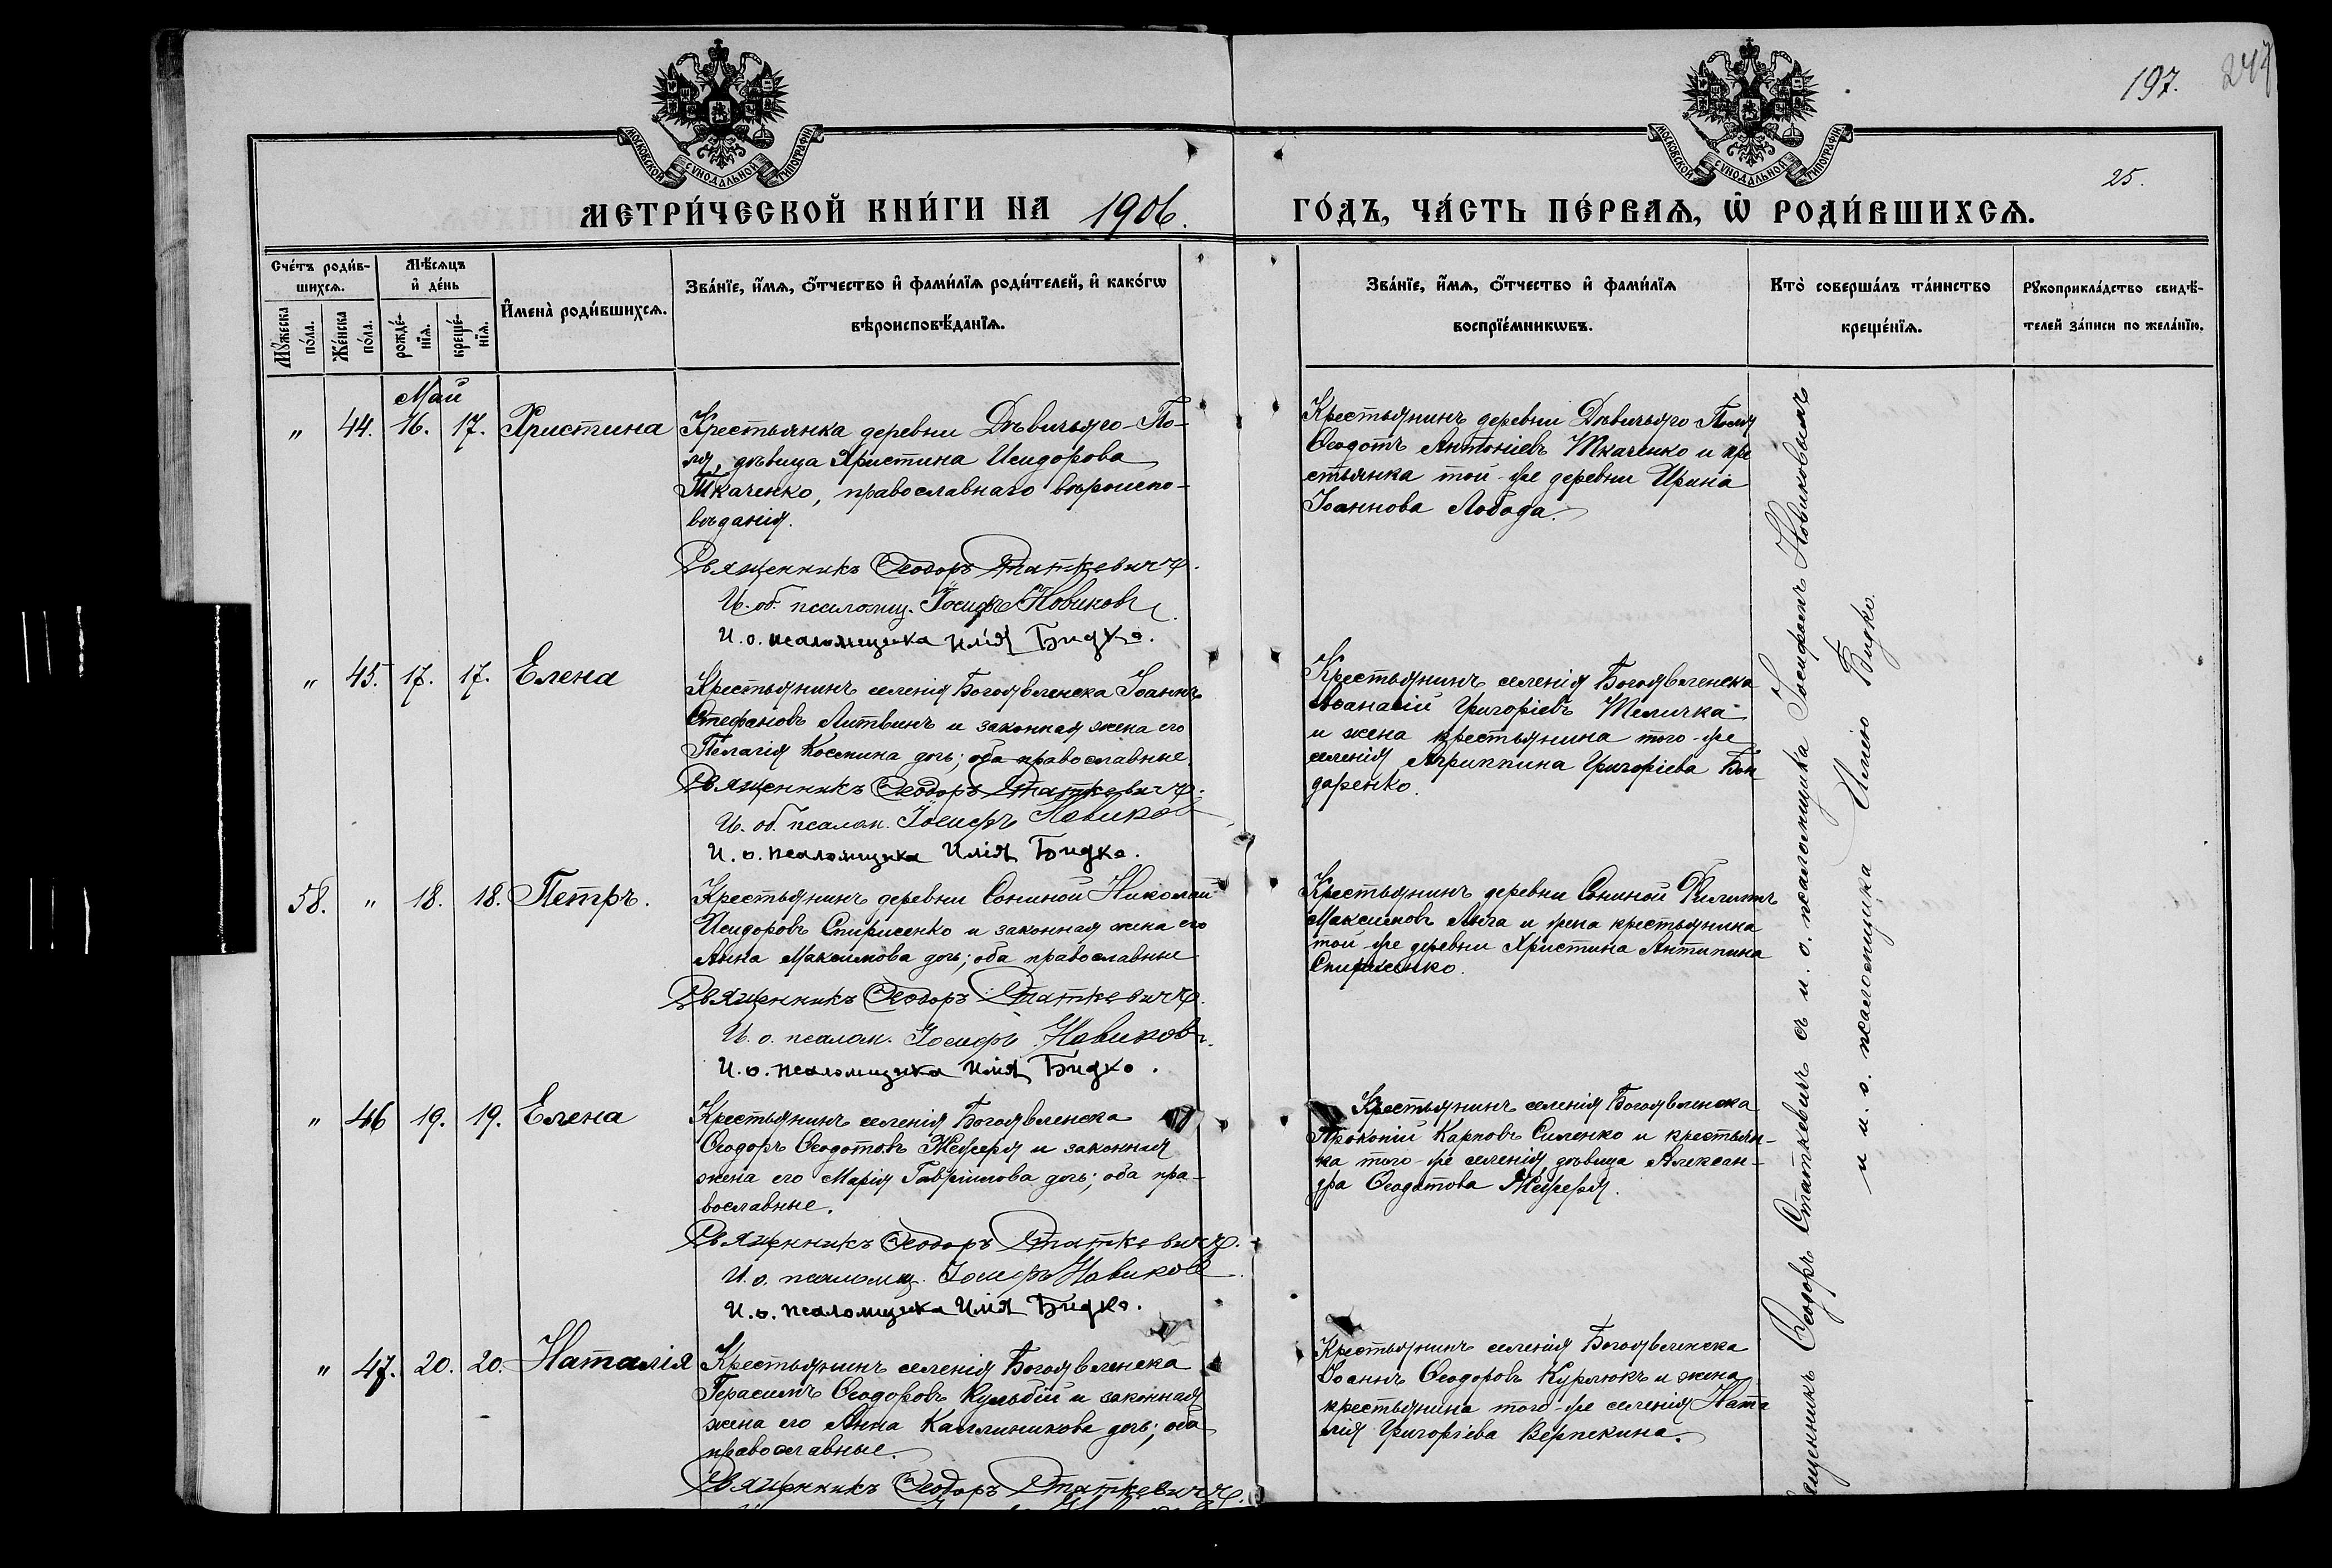 197.
247
МОСКОВСКОЙ СУНОДАЛЬНОЙ ТИПОГРАФІИ
МОСКОВСКОЙ СУНОДАЛЬНОЙ ТИПОГРАФІИ
25.
МЕТРИ́ЧЕСКОЙ КНИ́ГИ НА 1906.
ГО́ДЪ, ЧА́СТЬ ПЕ́РВАѦ, Ѡ҆ РОДИ́ВШИХСѦ.
Сче́тъ роди́в-
шихсѧ.
Мѣ́сѧцъ
и҆ де́нь
Мꙋ́жеска
по́ла.
Же́нска
по́ла.
рожде́-
нїѧ.
креще́-
нїѧ.
И҆мена̀ роди́вшихсѧ.
Зва́нїе, и҆́мѧ, ѻ҆́тчество и҆ фами́лїѧ роди́телей, и҆ како́гѡ
вѣроисповѣ́данїѧ.
Зва́нїе, и҆́мѧ, ѻ҆́тчество и҆ фами́лїѧ
воспрїе́мникѡвъ.
Кто̀ соверша́лъ та́инство
креще́нїѧ.
Рꙋкоприкла́дство свидѣ́-
телей за́писи по жела́нїю.
Май
" 44. 16. 17. Христина
Крестьянка деревни Дѣвичьяго-По-
ля, дѣвица Христина Исидорова
Ткаченко, православнаго вѣроиспо-
вѣданія.
Священникъ Ѳеодоръ Статкевичъ.
И. об. псаломщ. Іосифъ Новиковъ.
И. о. псаломщика Илія Бидко.
Крестьянинъ деревни Дѣвичьяго Поля
Ѳеодотъ Антоніевъ Ткаченко и кре
стьянка той-же деревни Ирина
Іоаннова Лобода.
" 45. 17. 17. Елена
Крестьянинъ селенія Богоявленска Іоаннъ
Стефановъ Литвинъ и законная жена его
Пелагія Космина дочь; оба православные.
Священникъ Ѳеодоръ Статкевичъ.
И. об. псалом. Іосифъ Новиков
И. о. псаломщика Илія Бидко.
Крестьянинъ селенія Богоявленска
Аѳанасій Григоріевъ Теличка
и жена крестьянина того-же
селенія Агриппина Григоріева Бон-
даренко.
58. " 18. 18. Петръ.
Крестьянинъ деревни Сониной Николай
Исидоровъ Спирисенко и законная жена его
Анна Максимова дочь; оба православные
Священникъ Ѳеодоръ Статкевичъ.
И. о. псалом. Іосифъ Новиковъ.
И. о. псаломщика Илія Бидко.
Крестьянинъ деревни Сониной Филиппъ
Максимовъ Лига и жена крестьянина
той-же деревни Христина Антипина
Спирисенко.
" 46 19. 19. Елена
Крестьянинъ селенія Богоявленска
Ѳеодоръ Ѳеодотовъ Жежеря и законная
жена его Марія Гавріилова дочь; оба пра-
вославные.
Священникъ Ѳеодоръ Статкевичъ.
И. о. псаломщ. Іосифъ Новиковъ.
И. о. псаломщика Илія Бидко.
Крестьянинъ селенія Богоявленска
Прокопій Карповъ Силенко и крестьян-
ка того-же селенія, дѣвица Алексан-
дра Ѳеодотова Жежеря.
" 47. 20. 20. Наталія
Крестьянинъ селенія Богоявленска
Герасимъ Ѳеодоровъ Кульбій и законная
жена его Анна Каллиникова дочь; оба
православные.
Священникъ Ѳеодоръ Статкевичъ.
Крестьянинъ селенія Богоявленска
Іоаннъ Ѳеодоровъ Курлюкъ и жена
крестьянина того-же селенія Ната
лія Григоріева Верпекина.
Священникъ Ѳеодоръ Статкевичъ съ и. о. псаломщика Іосифомъ Новиковымъ
и и. о. псаломщика Иліею Бидко.